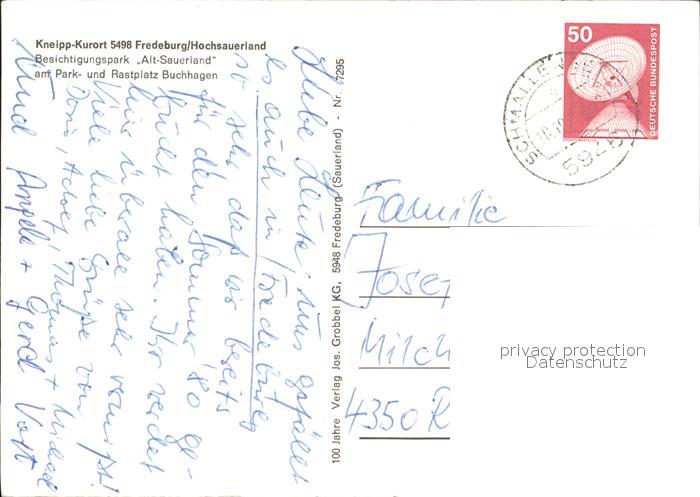 Kneipp-Kurort 5498 Fredeburg/Hochsauerland
Besichtigungspark „Alt-Sauerland"
am Park- und Rastplatz Buchhagen
Liebe Leute! Uns gefällt
es auch in Fredeburg
so sehr, daß wir bereits
für den Sommer '80 ge-
bucht haben. Ihr werdet
hier überall sehr vermißt!
Viele liebe Grüße von
Doris, Thomas + Michael
und Angela + Gerd Vott
100 Jahre Verlag Jos. Grobbel KG, 5948 Fredeburg (Sauerland) - Nr. 7295
50
DEUTSCHE BUNDESPOST
SCHMALLENBERG
5948
Familie
Josef
Milch
4350 R
privacy protection
Datenschutz